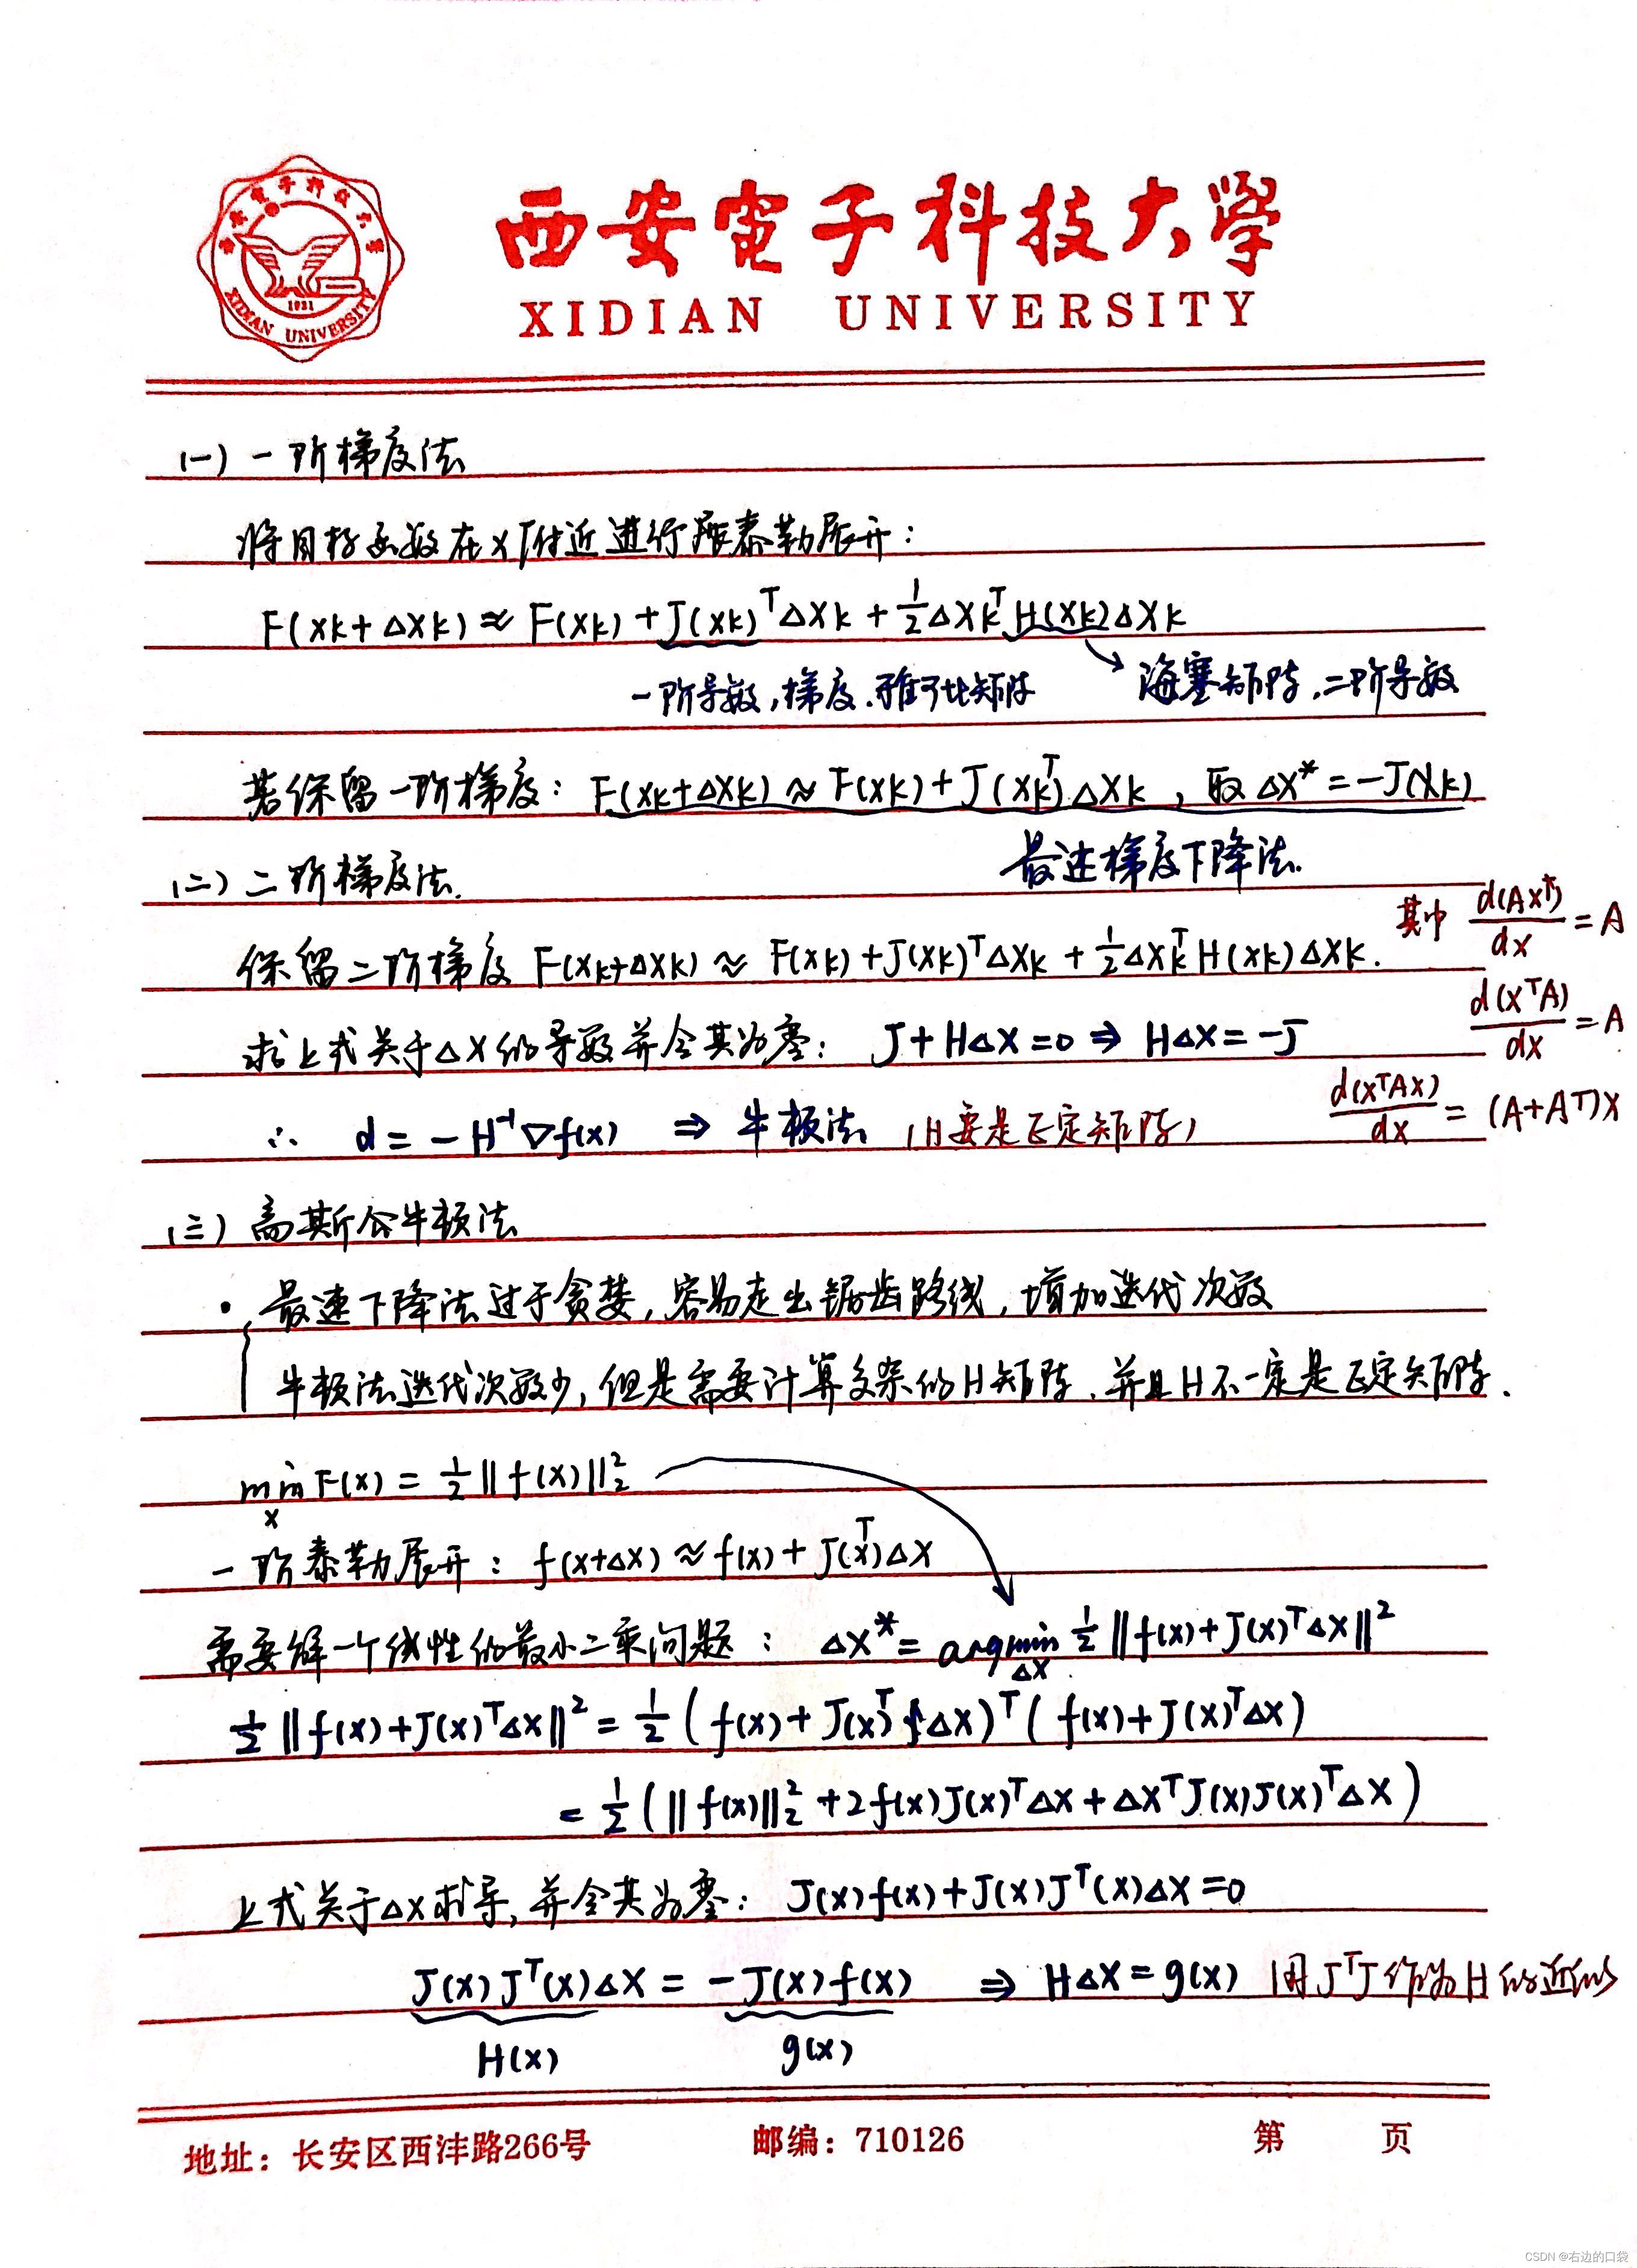 西安電子科技大學
XIDIAN UNIVERSITY
1931
XIDIAN UNIVERSITY
(一) 一阶梯度法
将目标函数在x附近进行泰勒展开:
F(xk+Δxk) ≈ F(xk) + J(xk)ᵀΔxk + ½ΔxkᵀH(xk)Δxk
一阶导数,梯度.雅可比矩阵
海塞矩阵.二阶导数
若保留一阶梯度: F(xk+Δxk) ≈ F(xk) + J(xk)ᵀΔxk , 取 Δx* = -J(xk)
最速梯度下降法.
(二) 二阶梯度法.
其中 d(Axᵀ)/dx = A
保留二阶梯度 F(xk+Δxk) ≈ F(xk) + J(xk)ᵀΔxk + ½ΔxkᵀH(xk)Δxk.
d(xᵀA)/dx = A
求上式关于Δx的导数并令其为零: J + HΔx = 0 ⇒ HΔx = -J
d(xᵀAx)/dx = (A+Aᵀ)x
∴ d = -H⁻¹∇f(x) ⇒ 牛顿法 (H要是正定矩阵)
(三) 高斯牛顿法
· 最速下降法过于贪婪,容易走出锯齿路线,增加迭代次数
牛顿法迭代次数少,但是需要计算复杂的H矩阵.并且H不一定是正定矩阵.
min x F(x) = ½‖f(x)‖₂²
一阶泰勒展开: f(x+Δx) ≈ f(x) + J(x)ᵀΔx
需要解一个线性的最小二乘问题: Δx* = argmin Δx ½‖f(x)+J(x)ᵀΔx‖²
½‖f(x)+J(x)ᵀΔx‖² = ½(f(x)+J(x)ᵀΔx)ᵀ(f(x)+J(x)ᵀΔx)
= ½(‖f(x)‖₂² + 2f(x)J(x)ᵀΔx + ΔxᵀJ(x)J(x)ᵀΔx)
上式关于Δx求导,并令其为零: J(x)f(x)+J(x)Jᵀ(x)Δx=0
J(x)Jᵀ(x)Δx = -J(x)f(x) ⇒ HΔx = g(x) 用JᵀJ作为H的近似
H(x) g(x)
地址: 长安区西沣路266号 邮编: 710126 第 页
CSDN @右边的口袋